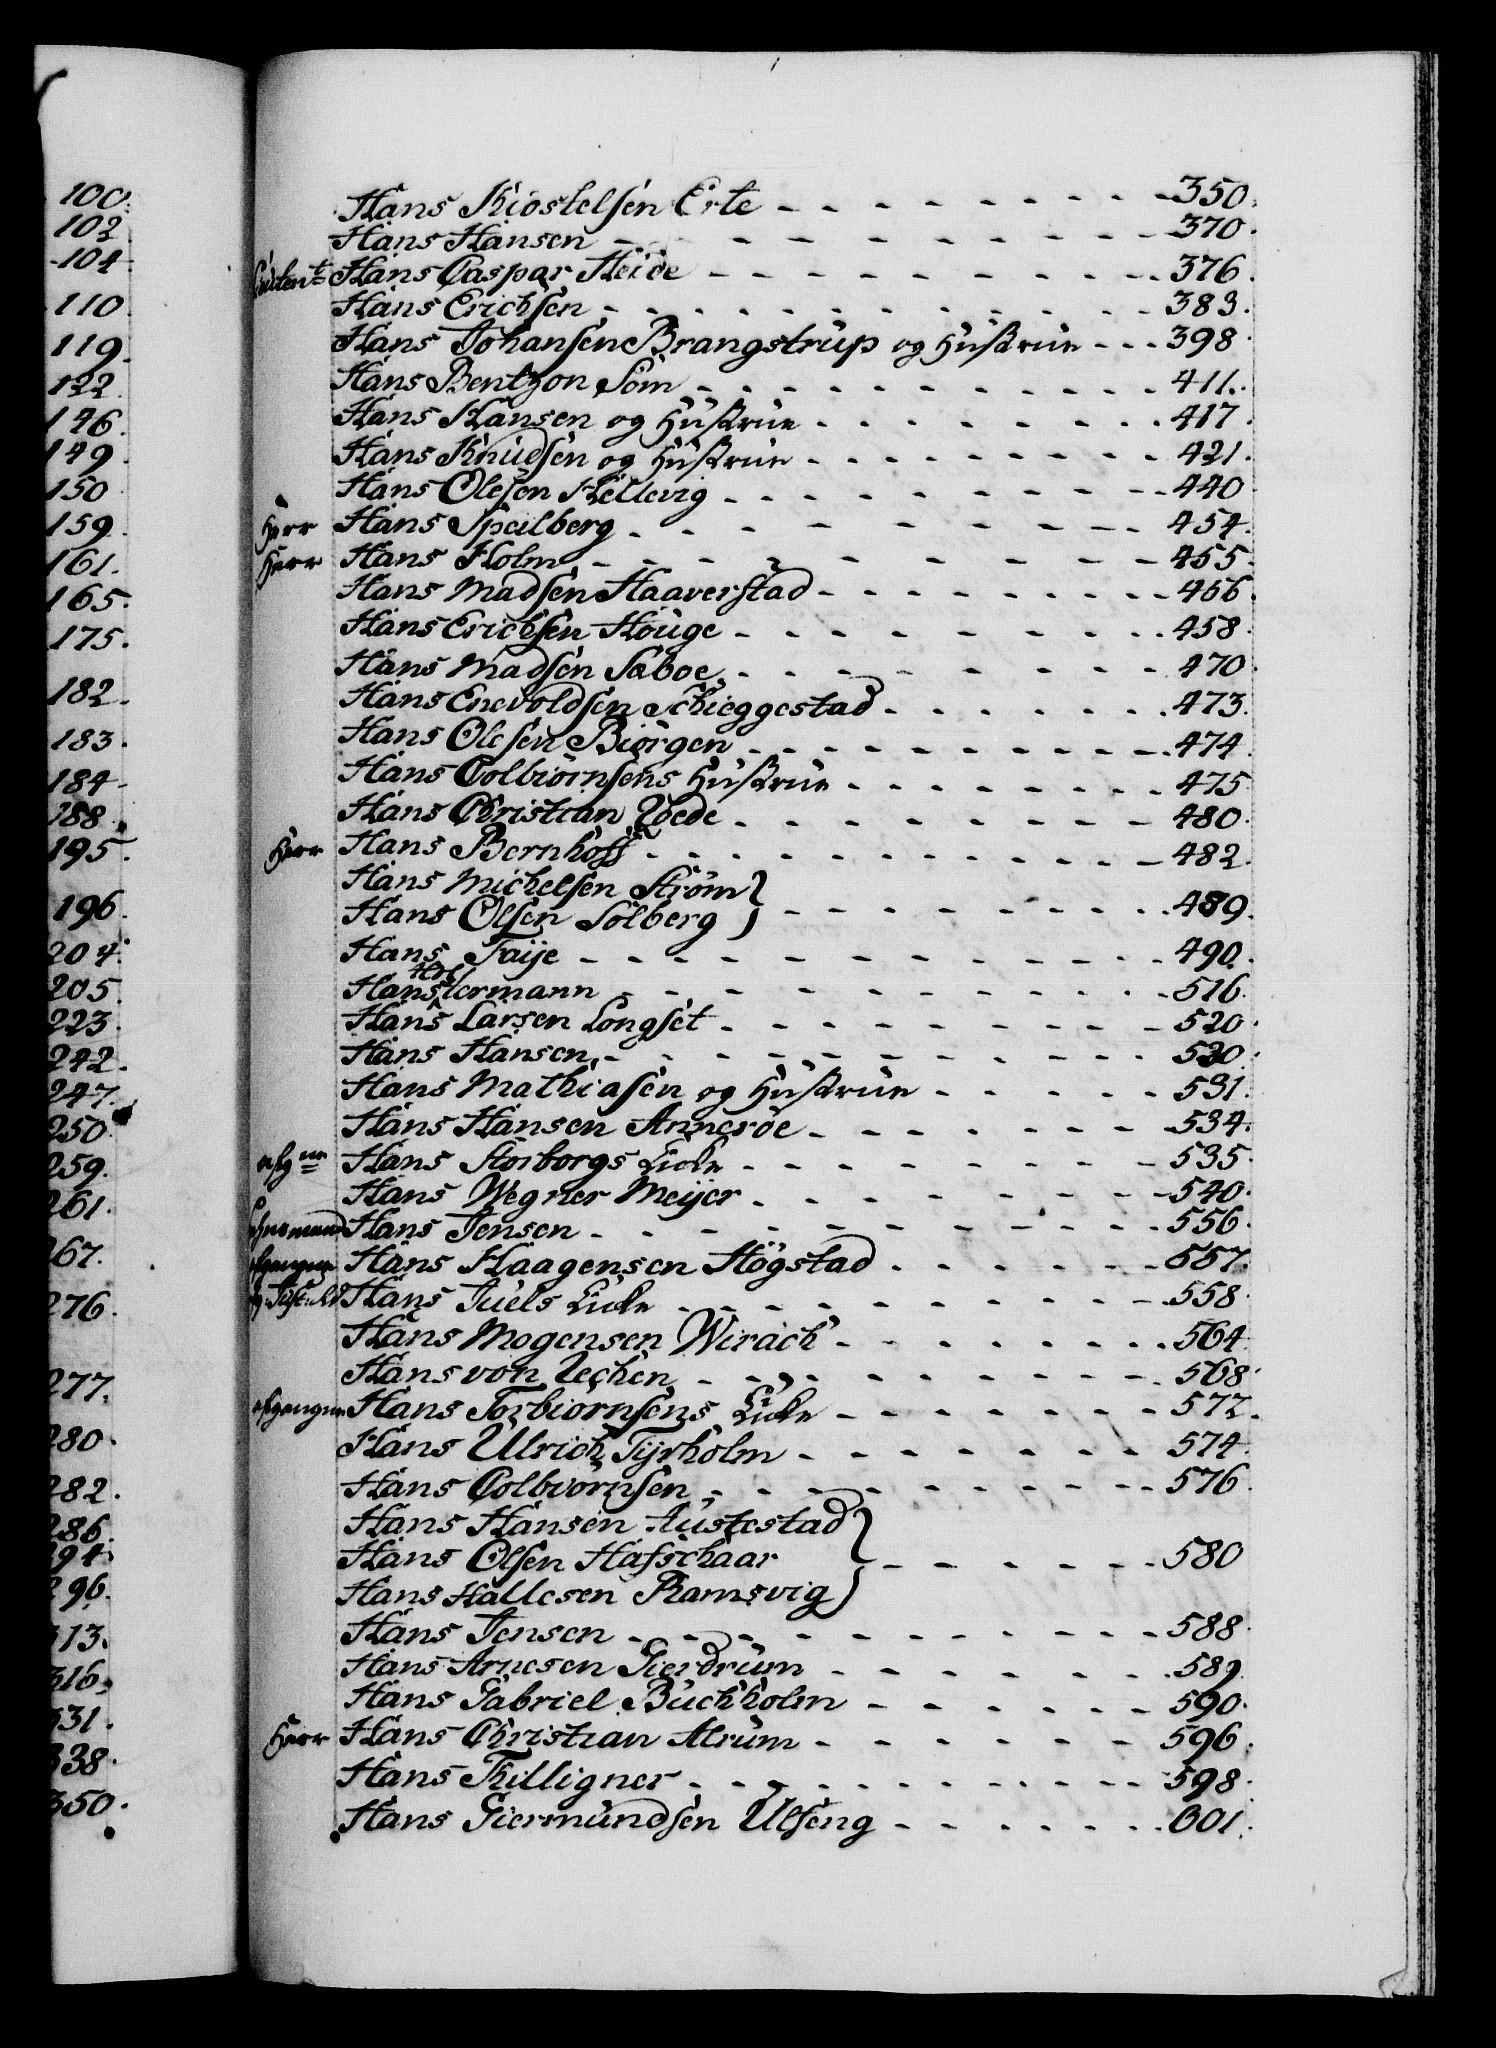 100.
102.
104.
110.
119.
122.
146.
149.
150
159.
161.
165.
175.
182.
183.
184.
188.
195.
196.
204.
205.
223.
242.
247.
250.
259.
261.
267.
276.
277.
280.
282.
286.
294.
296.
313.
316.
331.
338.
350.
Hans Kiostelsen Erte - - - - - - - - 350.
Hans Hansen - - - - - - - - 370.
Lieutent Hans Caspar Heide - - - - - - - - 376.
Hans Erichsen - - - - - - - - 383.
Hans Johansen Brangstrup og Hustrue - - - 398.
Hans Bentzon Söm - - - - - - - - 411.
Hans Hansen og Hustrue - - - - - - - - 417.
Hans Knudsen og Hustrue - - - - - - - - 421.
Hans Olesen Hellevig - - - - - - - - 440
Herr Hans Speilberg - - - - - - - - 454.
Herr Hans Holm - - - - - - - - 455.
Hans Madsen Haaverstad - - - - - - - - 456.
Hans Erichsen Houge - - - - - - - - 458.
Hans Madsen Saboe - - - - - - - - 470.
Hans Enevoldsen Schieggestad - - - - - - - 473.
Hans Olesen Biørgen - - - - - - - - 474.
Hans Colbiørnsens Hustrue - - - - - - - - 475.
Hans Christian Voede - - - - - - - - 480.
Herr Hans Bernhoft - - - - - - - - 482.
Hans Michelsen Strøm }
Hans Olsen Solberg } - - - - - - - - 489.
Hans Faije - - - - - - - - 490.
Hans Holtermann - - - - - - - - 516.
Hans Larsen Longset - - - - - - - - 520.
Hans Hansen - - - - - - - - 530.
Hans Mathiasen og Hustrue - - - - - 531.
Hans Hansen Anneröe - - - - - - - 534.
afgne Hans Storborgs Enke - - - - - - - - 535.
Hans Wegner Meijer - - - - - - - - 540.
Hans Jensen - - - - - - - - 556.
afgangne Hans Haagensen Högstad - - - - - - 557.
Hans Juels Enke - - - - - - - - 558.
Hans Mogensen Wirach - - - - - - - 564
Hans von Uechen - - - - - - - - 568.
afgangne Hans Torbiørnsens Enke - - - - - - - 572.
Hans Ulrich Tyrholm - - - - - - - 574.
Hans Colbiørnsen - - - - - - - - 576.
Hans Hansen Austestad }
Hans Olsen Hafschaar } - - - - - - - 580
Hans Hallesen Ramsvig }
Hans Jensen - - - - - - - - 588.
Hans Arnesen Gierdrum - - - - - - - 589.
Hans Gabriel Buchholm - - - - - - 590.
Herr Hans Christian Atrum - - - - - - 596.
Hans Thilligner - - - - - - - - 598.
Hans Giermundsen Ulseng - - - - - - - 601.